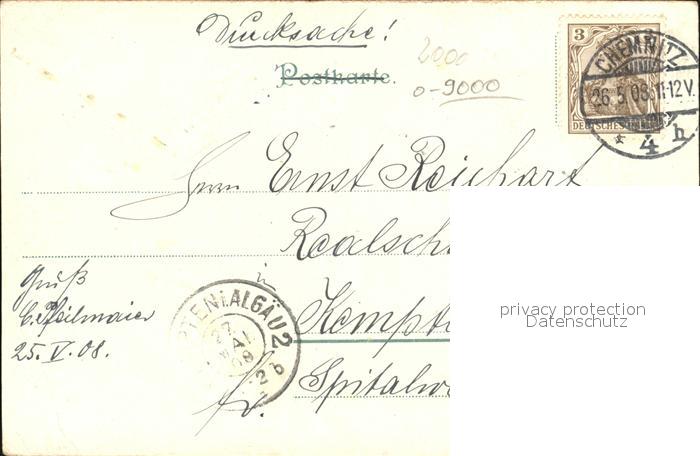 Drucksache!
Postkarte.
2000
0-9000
3
DEUTSCHES
CHEMNITZ
26.5.08.11-12V.
* 4 h
Herrn Ernst Reichart
Realsch
in
Kempt
Spitalw
Gruß
25.V.08.
PTEN I.ALGÄU 2
privacy protection
Datenschutz